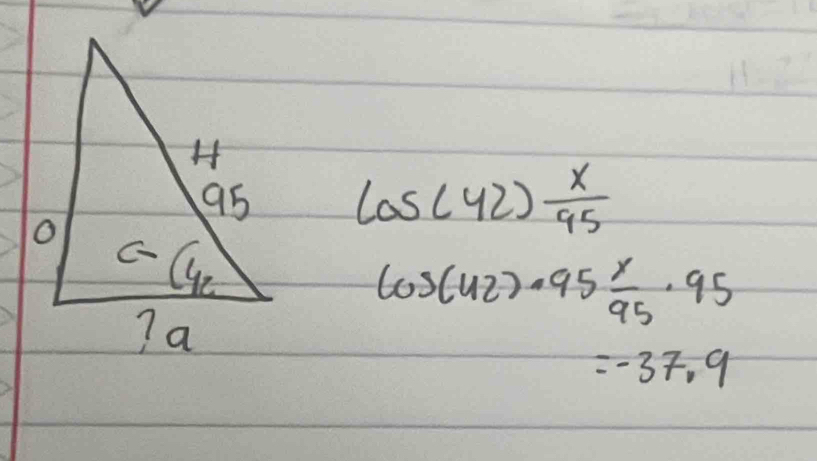 H
95
O
C- (42
? a
cos(42) x/95
cos(42) • 95 x/95 . 95
=-37.9